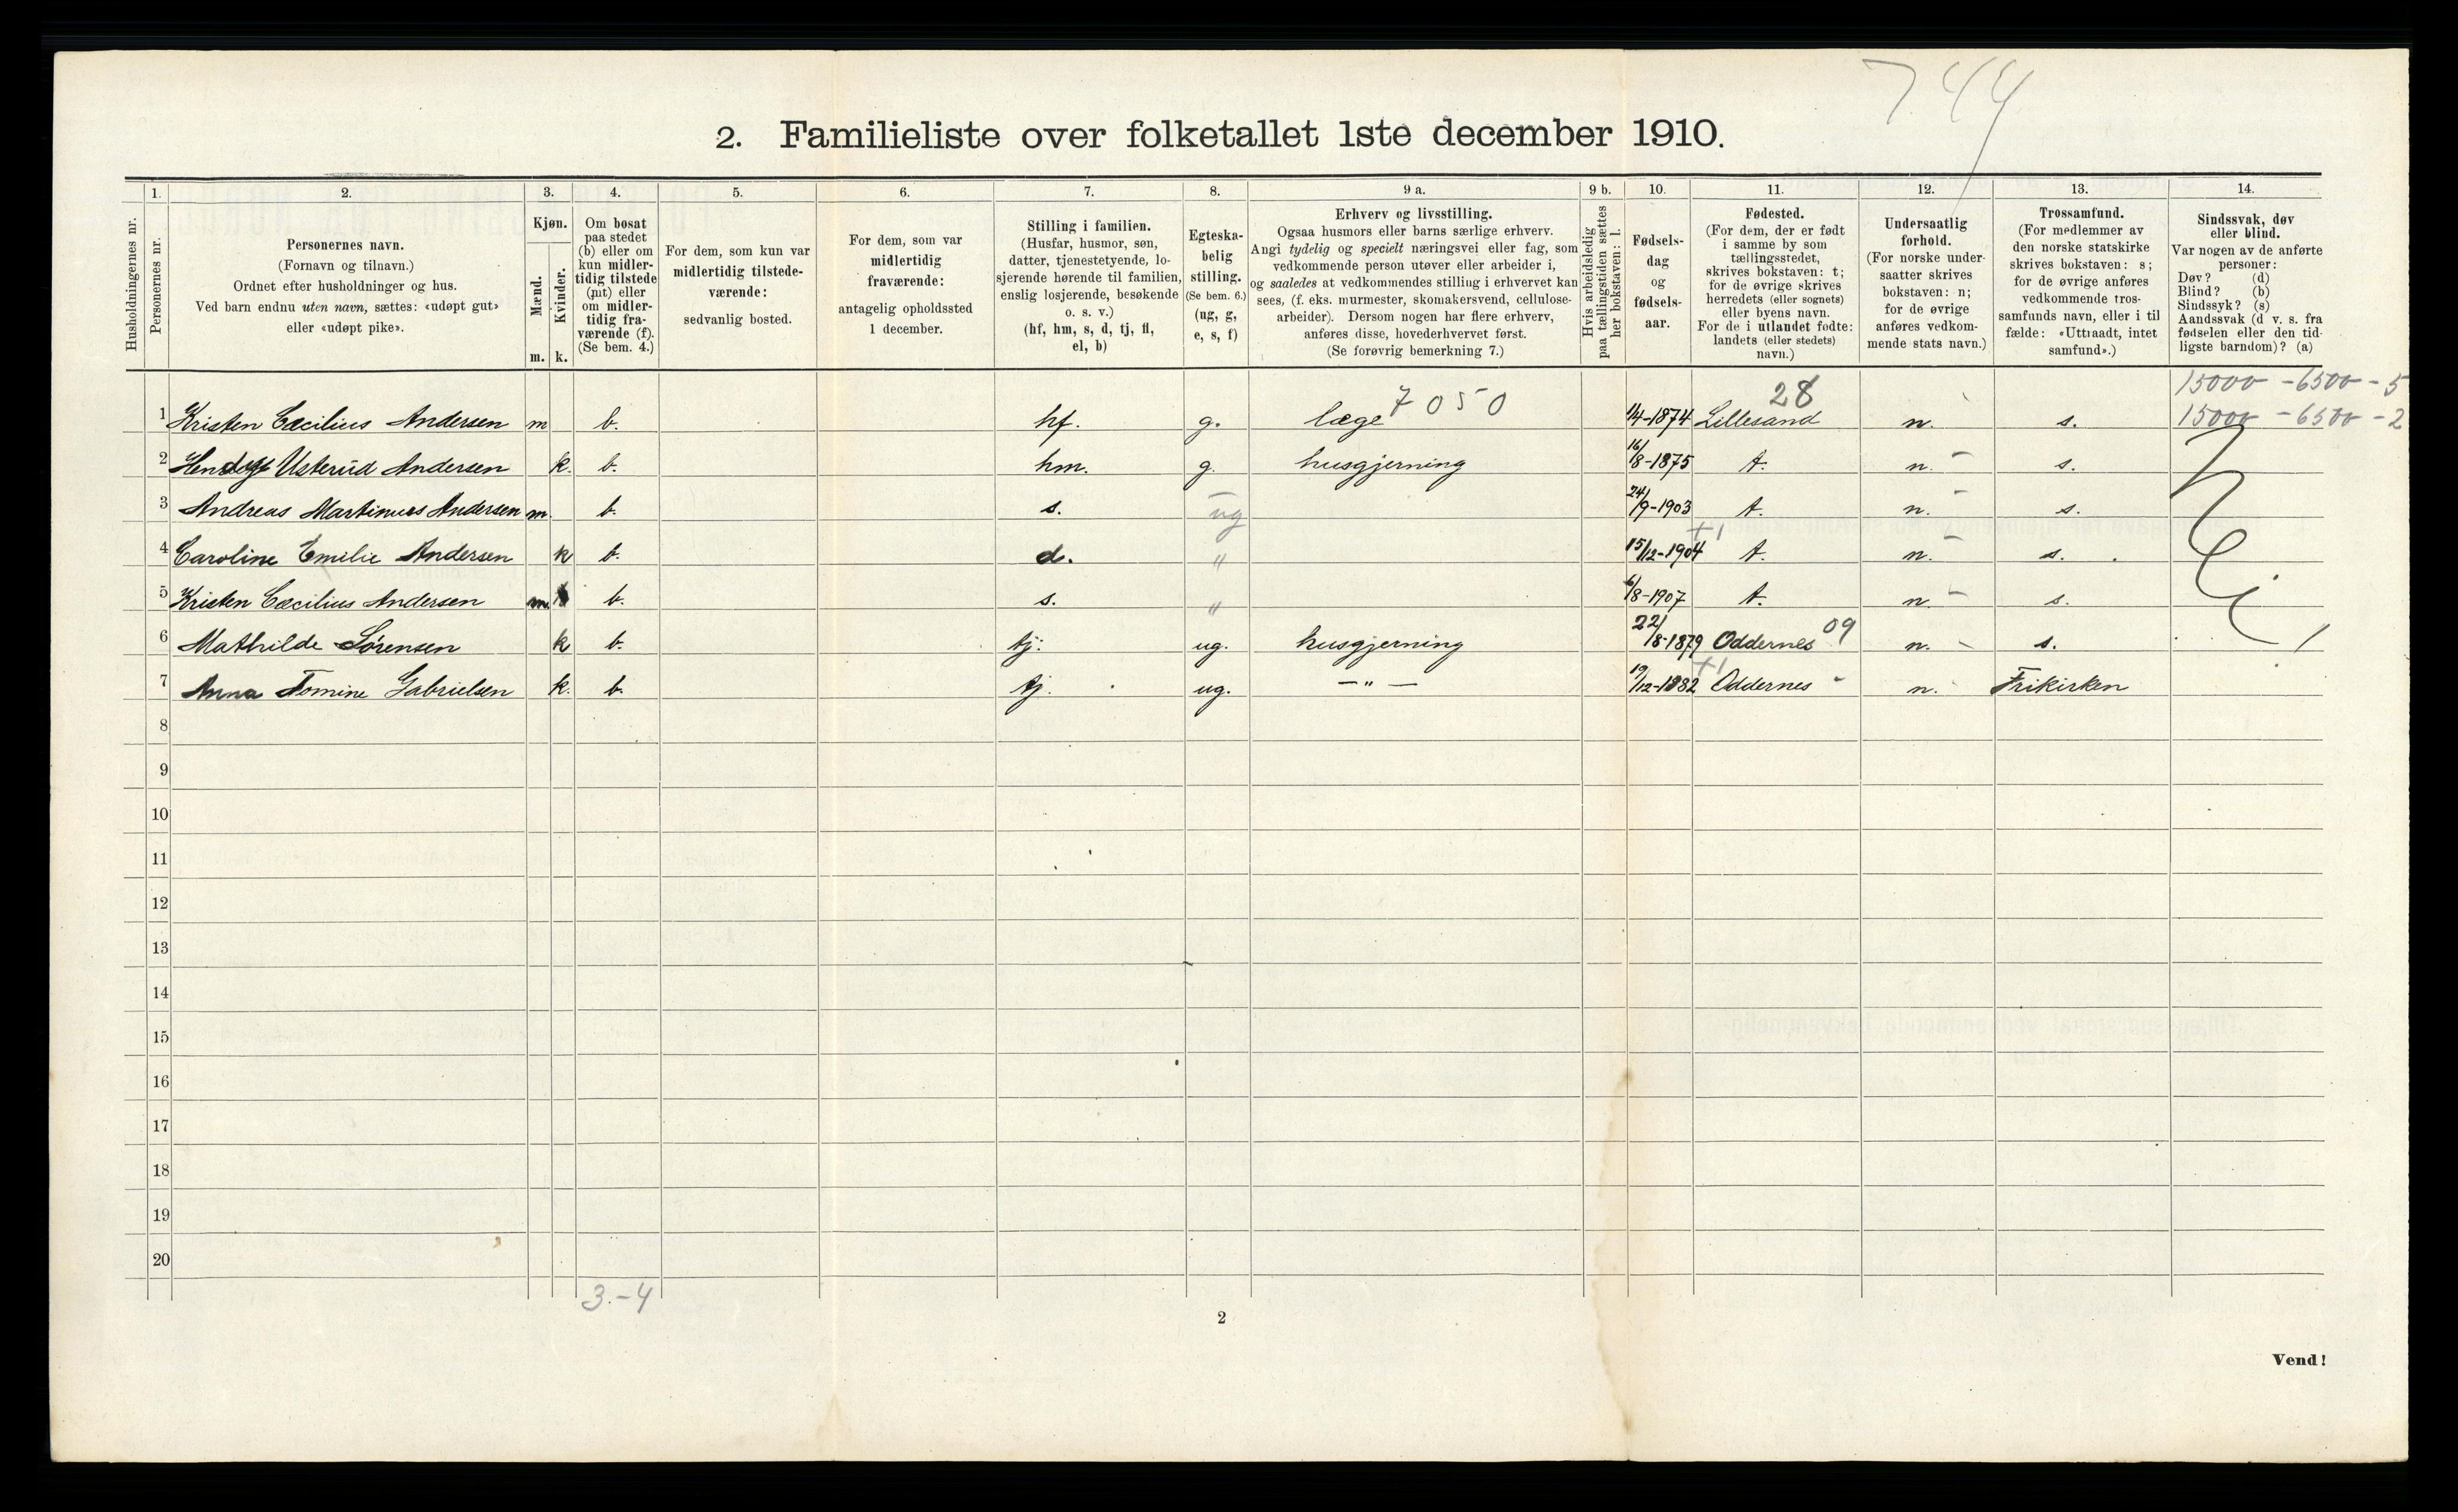 744
2. Familieliste over folketallet 1ste december 1910.
Husholdningernes nr.
1. Personernes nr.
2. Personernes navn.
(Fornavn og tilnavn.)
Ordnet efter husholdninger og hus.
Ved barn endnu uten navn, sættes: «udøpt gut»
eller «udøpt pike».
3. Kjøn.
Mænd. m.
Kvinder. k.
4. Om bosat
paa stedet
(b) eller om
kun midler-
tidig tilstede
(mt) eller
om midler-
tidig fra-
værende (f).
(Se bem. 4.)
5. For dem, som kun var
midlertidig tilstede-
værende:
sedvanlig bosted.
6. For dem, som var
midlertidig
fraværende:
antagelig opholdssted
1 december.
7. Stilling i familien.
(Husfar, husmor, søn,
datter, tjenestetyende, lo-
sjerende hørende til familien,
enslig losjerende, besøkende
o. s. v.)
(hf, hm, s, d, tj, fl,
el, b)
8. Egteska-
belig
stilling.
(Se bem. 6.)
(ug, g,
e, s, f)
9 a. Erhverv og livsstilling.
Ogsaa husmors eller barns særlige erhverv.
Angi tydelig og specielt næringsvei eller fag, som
vedkommende person utøver eller arbeider i,
og saaledes at vedkommendes stilling i erhvervet kan
sees, (f. eks. murmester, skomakersvend, cellulose-
arbeider). Dersom nogen har flere erhverv,
anføres disse, hovederhvervet først.
(Se forøvrig bemerkning 7.)
9 b. Hvis arbeidsledig
paa tællingstiden sættes
her bokstaven: l.
10. Fødsels-
dag
og
fødsels-
aar.
11. Fødested.
(For dem, der er født
i samme by som
tællingsstedet,
skrives bokstaven: t;
for de øvrige skrives
herredets (eller sognets)
eller byens navn.
For de i utlandet fødte:
landets (eller stedets)
navn.)
12. Undersaatlig
forhold.
(For norske under-
saatter skrives
bokstaven: n;
for de øvrige
anføres vedkom-
mende stats navn.)
13. Trossamfund.
(For medlemmer av
den norske statskirke
skrives bokstaven: s;
for de øvrige anføres
vedkommende tros-
samfunds navn, eller i til
fælde: «Uttraadt, intet
samfund».)
14. Sindssvak, døv
eller blind.
Var nogen av de anførte
personer:
Døv? (d)
Blind? (b)
Sindssyk? (s)
Aandssvak (d v. s. fra
fødselen eller den tid-
ligste barndom)? (a)
7050 28 15000 - 6500 - 5
1 Kristen Cæcilius Andersen m b. hf. g. læge 1/4-1874 Lillesand n. s. 15000 - 6500 - 2
2 Usterud Andersen k. b. hm. g. husgjerning 16/8-1875 t. n. s.
3 Andreas Martinus Andersen m. b. s. ug 24/9-1903 t. n. s.
4 Caroline Emilie Andersen k b. d. " 15/12-1904 +1 t. n. s.
5 Kristen Cæcilius Andersen m. b. s. " 6/8-1907 t. n. s.
6 Mathilde Sørensen k b. tj. ug. husgjerning 22/8-1879 Oddernes 09 n. s.
7 Anna Tomine Gabrielsen k. b. tj. ug. — " — 19/12-1882 +1 Oddernes n. Frikirken
Nei
8
9
10
11
12
13
14
15
16
17
18
19
20
3-4
2
Vend!